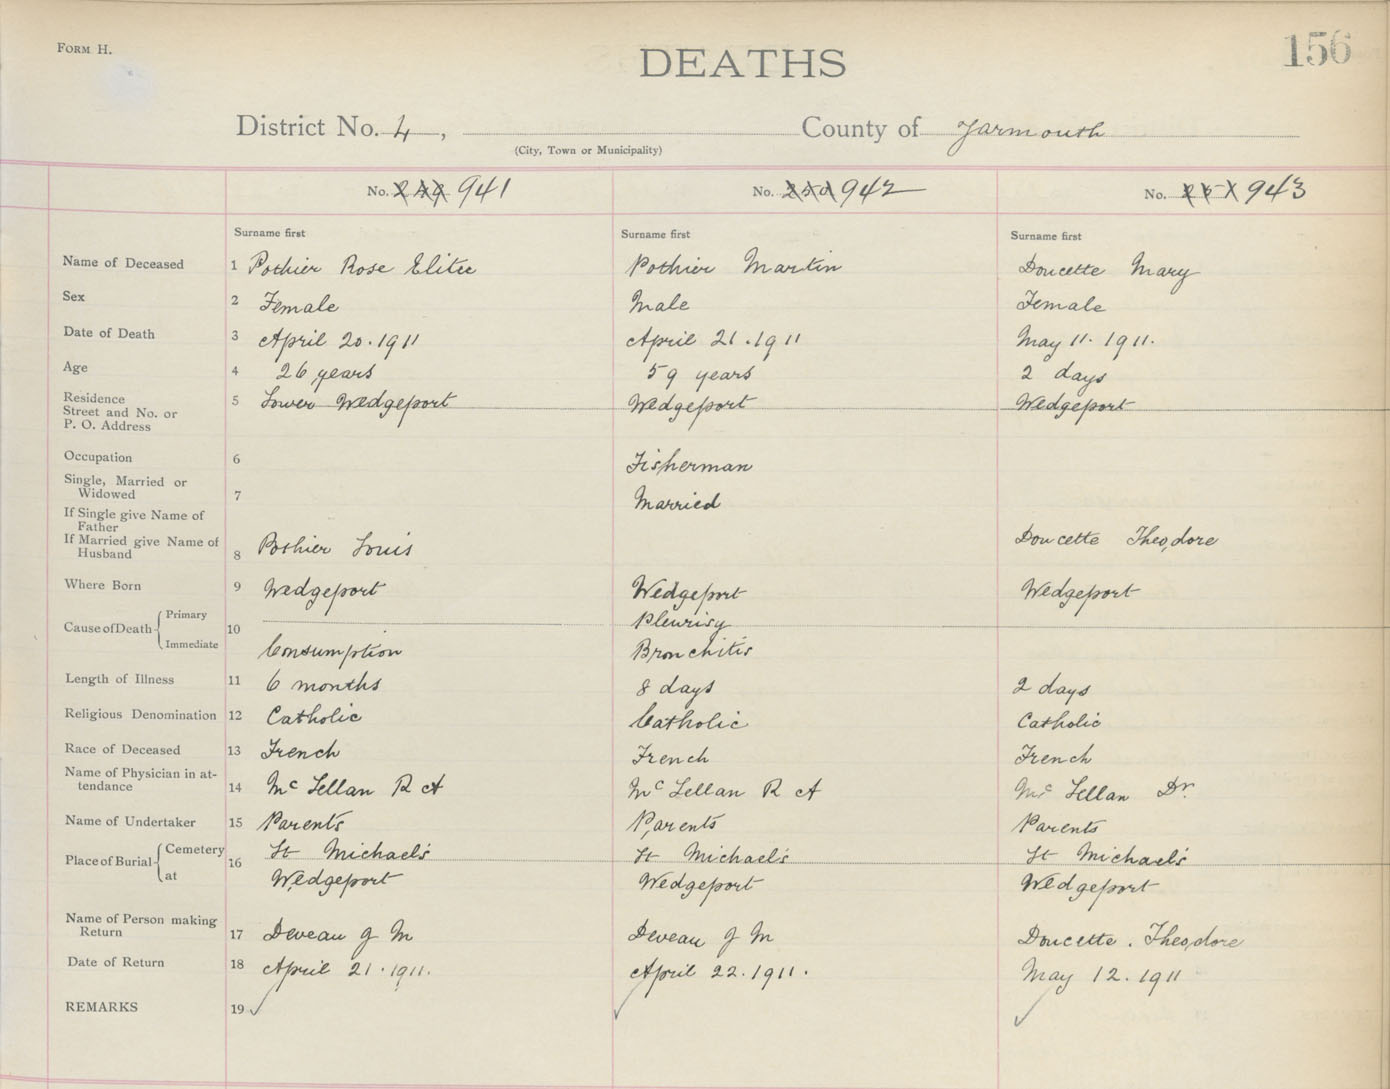 FORM H.
DEATHS
156
District No. 4, County of Yarmouth
(City, Town or Municipality)
No. 249 941 No. 250 942 No. 251 943
Surname first Surname first Surname first
Name of Deceased 1 Pothier Rose Elitee Pothier Martin Doucette Mary
Sex 2 Female Male Female
Date of Death 3 April 20. 1911 April 21. 1911 May 11. 1911.
Age 4 26 years 59 years 2 days
Residence
Street and No. or
P. O. Address 5 Lower Wedgeport Wedgeport Wedgeport
Occupation 6 Fisherman
Single, Married or
Widowed 7 Married
If Single give Name of
Father
If Married give Name of
Husband 8 Pothier Louis Doucette Theodore
Where Born 9 Wedgeport Wedgeport Wedgeport
Cause of Death 10 Primary Pleurisy
Immediate Consumption Bronchitis
Length of Illness 11 6 months 8 days 2 days
Religious Denomination 12 Catholic Catholic Catholic
Race of Deceased 13 French French French
Name of Physician in at-
tendance 14 Mc Lellan R A Mc Lellan R A Mc Lellan Dr.
Name of Undertaker 15 Parents Parents Parents
Place of Burial 16 Cemetery St Michael's St Michael's St Michael's
at Wedgeport Wedgeport Wedgeport
Name of Person making
Return 17 Deveau J M Deveau J M Doucette. Theodore
Date of Return 18 April 21. 1911. April 22. 1911. May 12. 1911
REMARKS 19